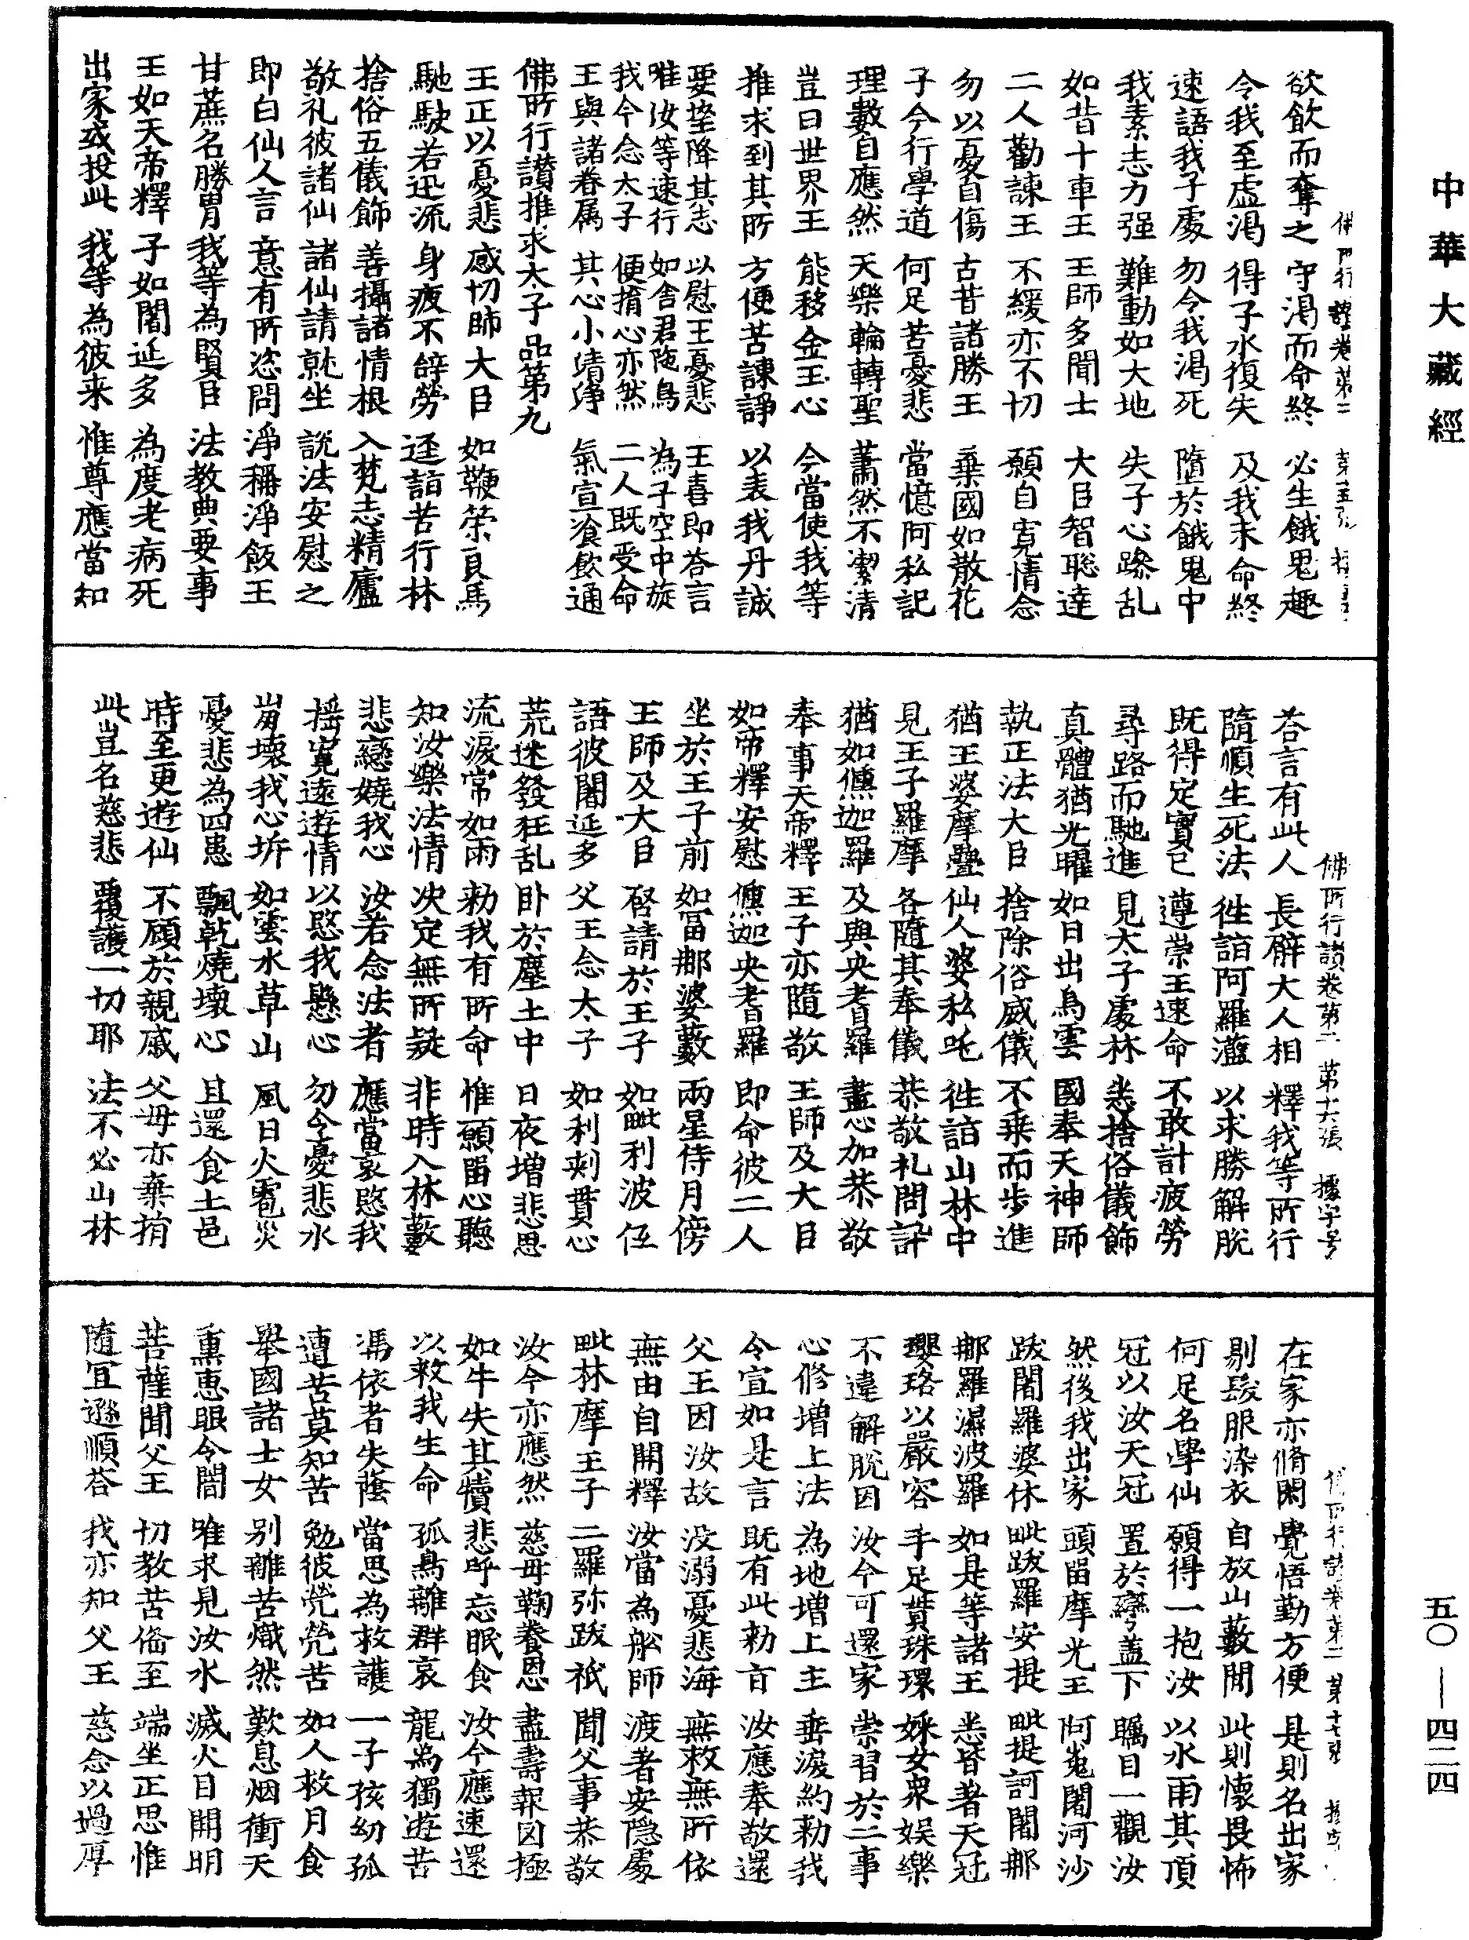 中華大藏經
佛所行讚卷第二 第十五張
欲飲而奪之 守渴而命終 必生餓鬼趣
令我至虛渴 得子水復失 及我未命終
速語我子處 勿令我渴死 墮於餓鬼中
我素志力强 難動如大地 失子心躁乱
如昔十車王 王師多聞士 大臣智聡達
二人勸諫王 不緩亦不切 願自寬情念
勿以憂自傷 古昔諸勝王 棄國如散花
子今行學道 何足苦憂悲 當憶阿私記
理數自應然 天樂輪轉聖 蕭然不潔清
豈曰世界王 能移金玉心 今當使我等
推求到其所 方便苦諫諍 以表我丹誠
要望降其志 以慰王憂悲 王喜即荅言
唯汝等速行 如舍君陁鳥 為子空中旋
我今念太子 便悁心亦然 二人既受命
王與諸眷属 其心小清淨 氣宣飡飲通
佛所行讃推求太子品第九
王正以憂悲 感切師大臣 如鞭策良馬
馳駛若迅流 身疲不辝勞 逕詣苦行林
捨俗五儀飾 善攝諸情根 入梵志精廬
敬礼彼諸仙 諸仙請就坐 說法安慰之
即白仙人言 意有所諮問 淨稱淨飯王
甘蔗名勝胄 我等為賢臣 法教典要事
王如天帝釋 子如闍延多 為度老病死
出家或投此 我等為彼来 惟尊應當知
佛所行讃卷第二 第十六張 據字号
荅言有此人 長臂大人相 擇我等所行
隨順生死法 往詣阿羅藍 以求勝解脫
既得定實已 遵崇王速命 不敢計疲勞
尋路而馳進 見太子處林 悉捨俗儀飾
真體猶光曜 如日出烏雲 國奉天神師
執正法大臣 捨除俗威儀 不乗而步進
猶王婆摩疊 仙人婆私吒 往詣山林中
見王子羅摩 各隨其奉儀 恭敬礼問訊
猶如儵迦羅 及與央耆羅 盡心加恭敬
奉事天帝釋 王子亦隨敬 王師及大臣
如帝釋安慰 儵迦央耆羅 即命彼二人
坐於王子前 如富那婆藪 兩星侍月傍
王師及大臣 啓請於王子 如毗利波低
語彼闍延多 父王念太子 如利刺貫心
荒迷發狂乱 卧於塵土中 日夜增悲思
流淚常如雨 勑我有所命 惟願留心聽
知汝樂法情 决定無所疑 非時入林藪
悲戀嬈我心 汝若念法者 應當哀愍我
揺寬遠遊情 以慰我懸心 勿令憂悲水
崩壞我心岸 如雲水草山 風日火雹災
憂悲為四患 飄乾燒壞心 且還食土邑
時至更遊仙 不顧於親戚 父母亦棄捐
此豈名慈悲 覆護一切耶 法不必山林
第十七張
在家亦脩閑 覺悟勤方便 是則名出家
剔髮服染衣 自放山藪間 此則懷畏怖
何足名學仙 願得一抱汝 以水雨其頂
冠以汝天冠 置於繖盖下 矚目一觀汝
然後我出家 頭留摩先王 阿㝹闍河沙
跋闍羅婆休 毗跋羅安提 毗提訶闍那
那羅濕波羅 如是等諸王 悉皆著天冠
瓔珞以嚴容 手足貫珠環 婇女衆娛樂
不違解脫因 汝今可還家 崇習於二事
心修增上法 為地增上主 垂淚約勑我
令宣如是言 既有此勑旨 汝應奉敬還
父王因汝故 没溺憂悲海 無救無所依
無由自開釋 汝當為舩師 渡著安隱處
毗林摩王子 二羅弥跋祇 聞父事恭敬
汝今亦應然 慈母鞠養恩 盡壽報罔極
如牛失其犢 悲呼忘眠食 汝今應速還
以救我生命 孤鳥離群哀 龍為獨遊苦
馮依者失蔭 當思為救護 一子孩幼孤
遭苦莫知苦 勉彼煢煢苦 如人救月食
舉國諸士女 别離苦熾然 歎息烟衝天
熏惠眼令闇 唯求見汝水 滅火目開明
菩薩聞父王 切教苦俻至 端坐正思惟
隨冝遜順荅 我亦知父王 慈念以過厚
五〇—四二四